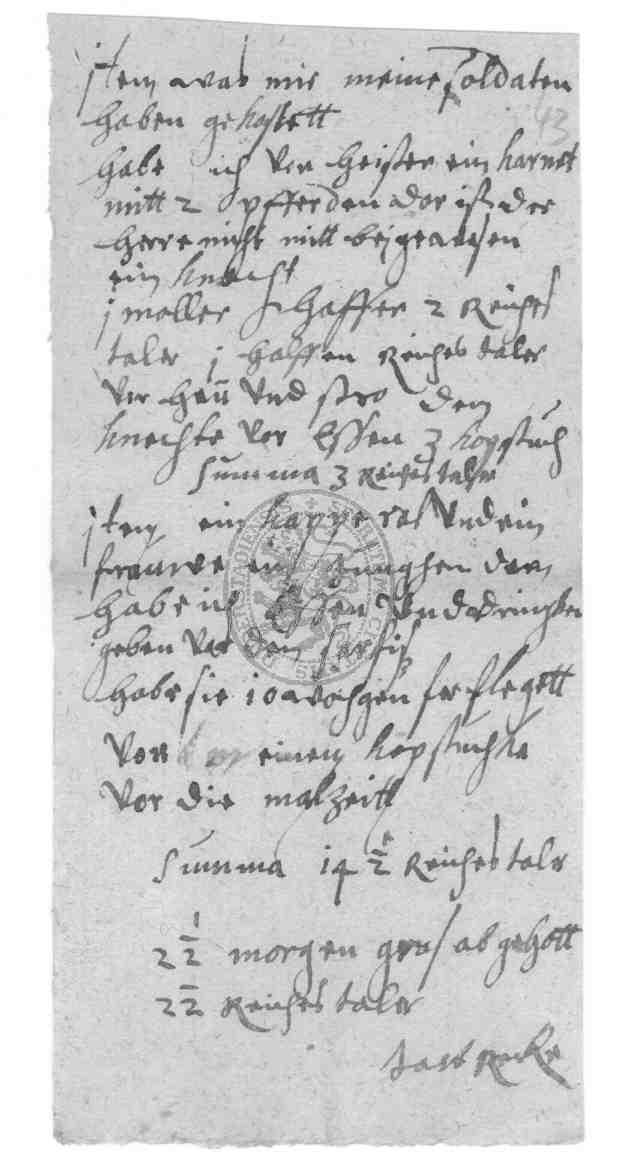 jtem was mir meine soldaten
haben gekostett
43
habe ich vor heister ein harnet
mitt 2 pfferden dar ist der
herre nicht mitt bej gewesen
ein knecht
j maller haffer 2 Reiches
taler j halffen Reiches taler
vor heu vnd stro dem
knechte vor Essen 3 kopstuch
Summa 3 Reichestaler
jtem ein vnd ein
frauwe ein junghen den
habe ich Essen vnd drincken
geben vor den
habe sie 10 wochgen ferflegett
vor einen kopstucke
vor die malzeitt
Summa 14 1/2 Reiches taler
2 1/2 morgen gras ab gehott
2 1/2 Reiches taler